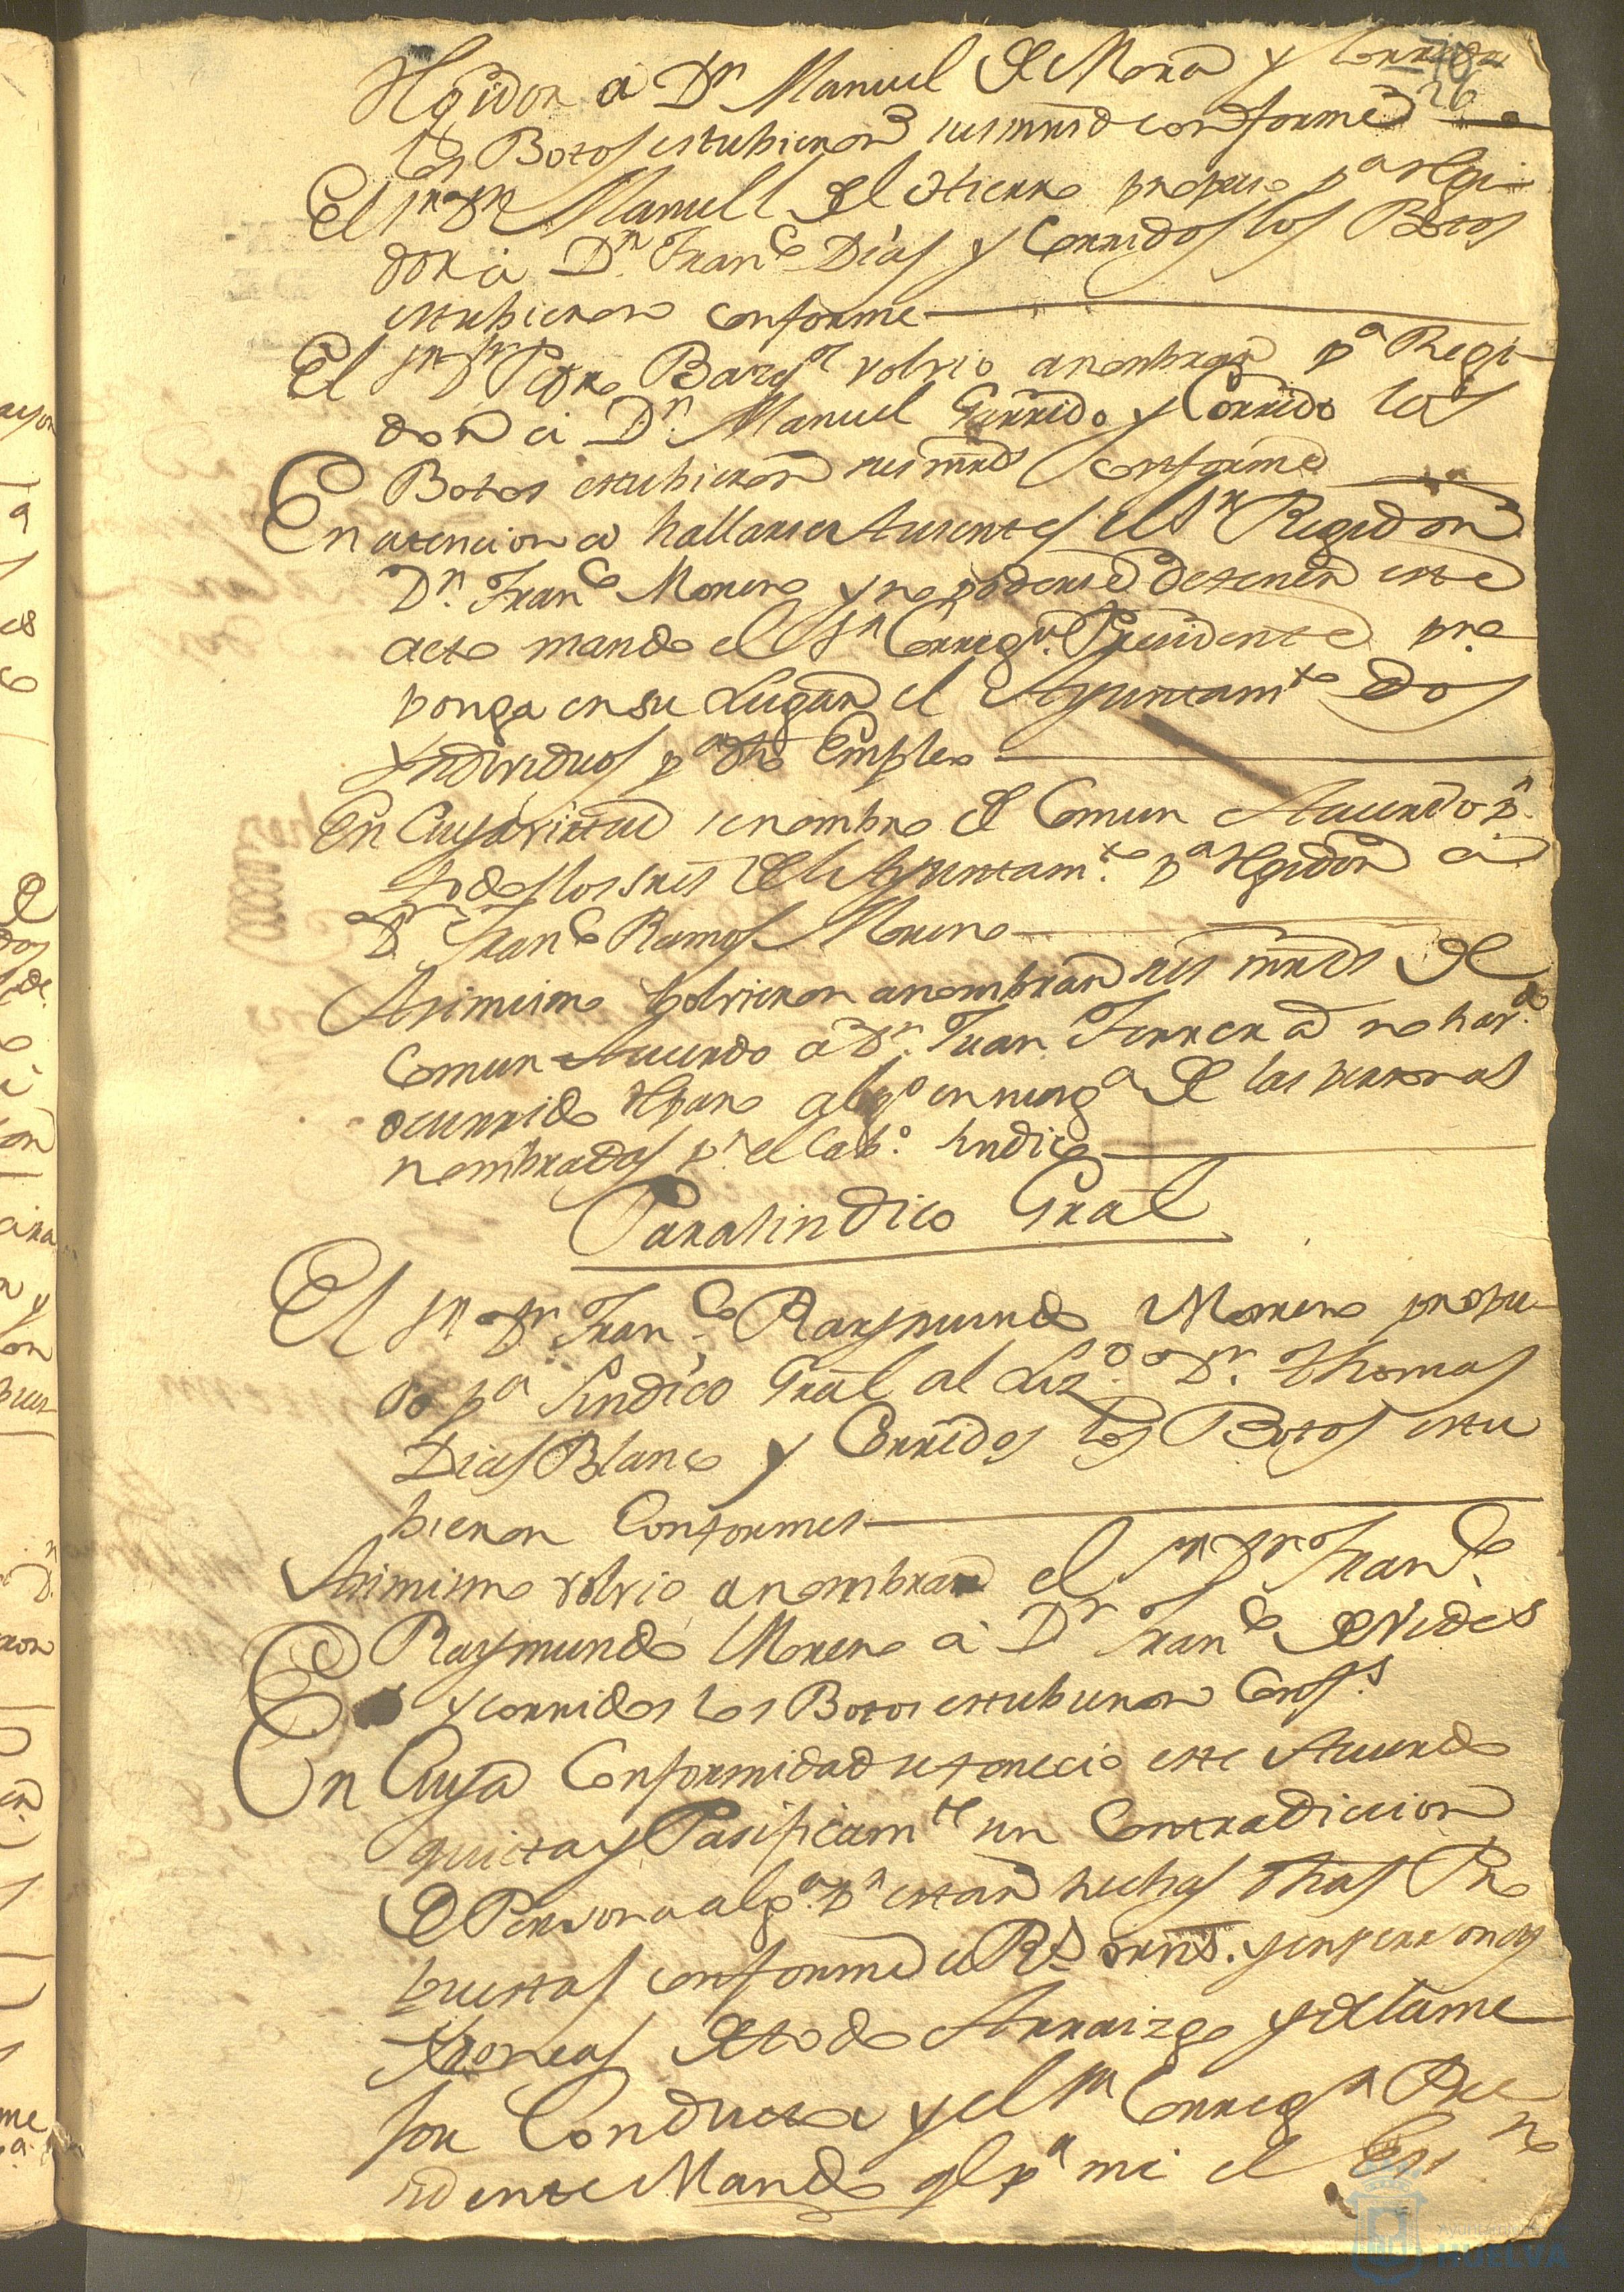 Rgidor a Dn Manuel de Mora y Corridos
los Botos estubieron sus mrds conforme
El sr Dn Manuel del Hierro propuso pa Regi
dor a Dn Franco Dias y Corridos los Botos
estubieron conforme
El sr Dn Pedro volvio a nombrar pa Regi
dor a Dn Manuel Garrido y Corrido los
Botos estubieron sus mrds conforme
En atencion a hallarse Ausente el sr Regidor
Dn Franco Moreno y no poderse detener este
acto mando el sr Corregr Presidente pro
ponga en su Lugar el Ayuntamto dos
Yndividuos pa dho Empleo
En Cuya virtud se nombro de Comun Acuerdo pr
todos los sres del Ayuntamto pa Rgidor a
Dn Franco Ramos Moreno
Asimismo bolvieron a nombrar sus mrds de
comun Acuerdo a Dn Juan Ferrer a no haver
ocurrido Rparo algo en ninga de las personas
nombradas pr el Cabo Sindico
Para Sindico Gral
El sr Dn Franco Raymundo Moreno propu
so pa Sindico Gral al Lizdo Dn Thomas
Dias Blanco y Corridos los Botos estu
bieron Conformes
Asimismo volvio a nombrar el sr Dn Franco
Raymundo Moreno a Dn Franco de Vides
y corridos los Botos estubieron Confs
En Cuya Conformidad se fenecio este Acuerdo
quieta y Pasificamte sin Contradiccion
de Persona alga pr estar hechas dhas Pro
puestas conforme a Rs orns. y en personas
Ydoneas de todo Arraizgo y de la me
jor Conducta y el sr Corregr Pre
sidente Mando q pr mi el Essno
26
Ayuntamiento
HUELVA